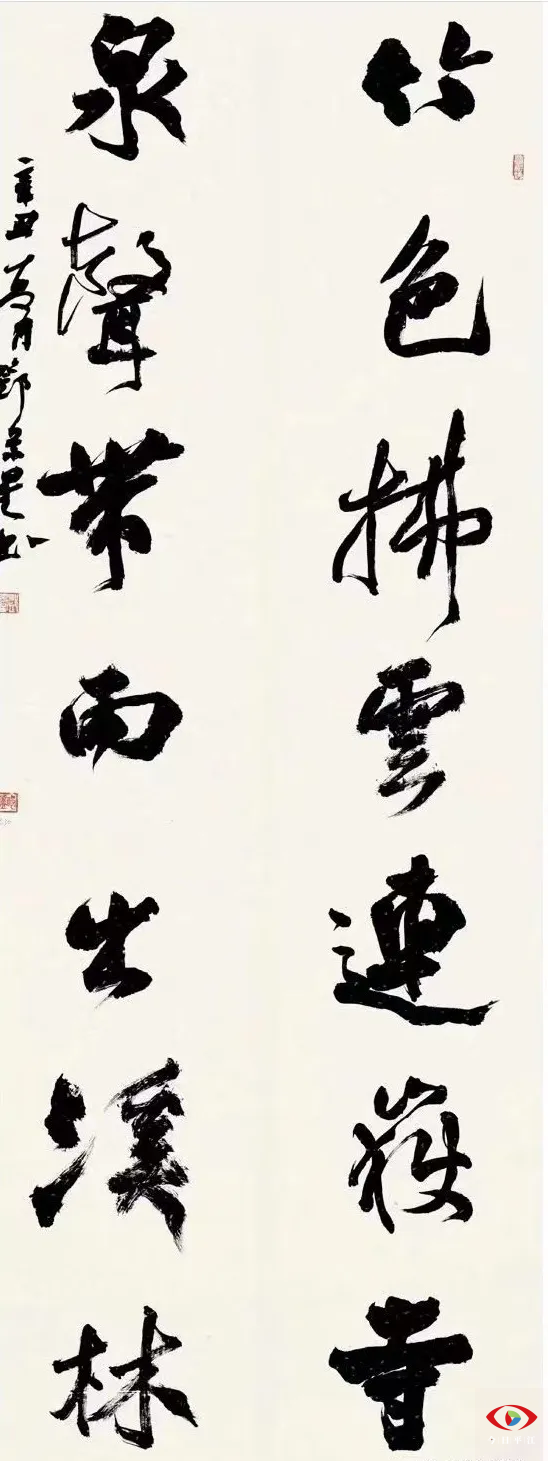 竹色拂雲連嶽寺
泉聲帶雨出溪林
辛丑 月鄧 書